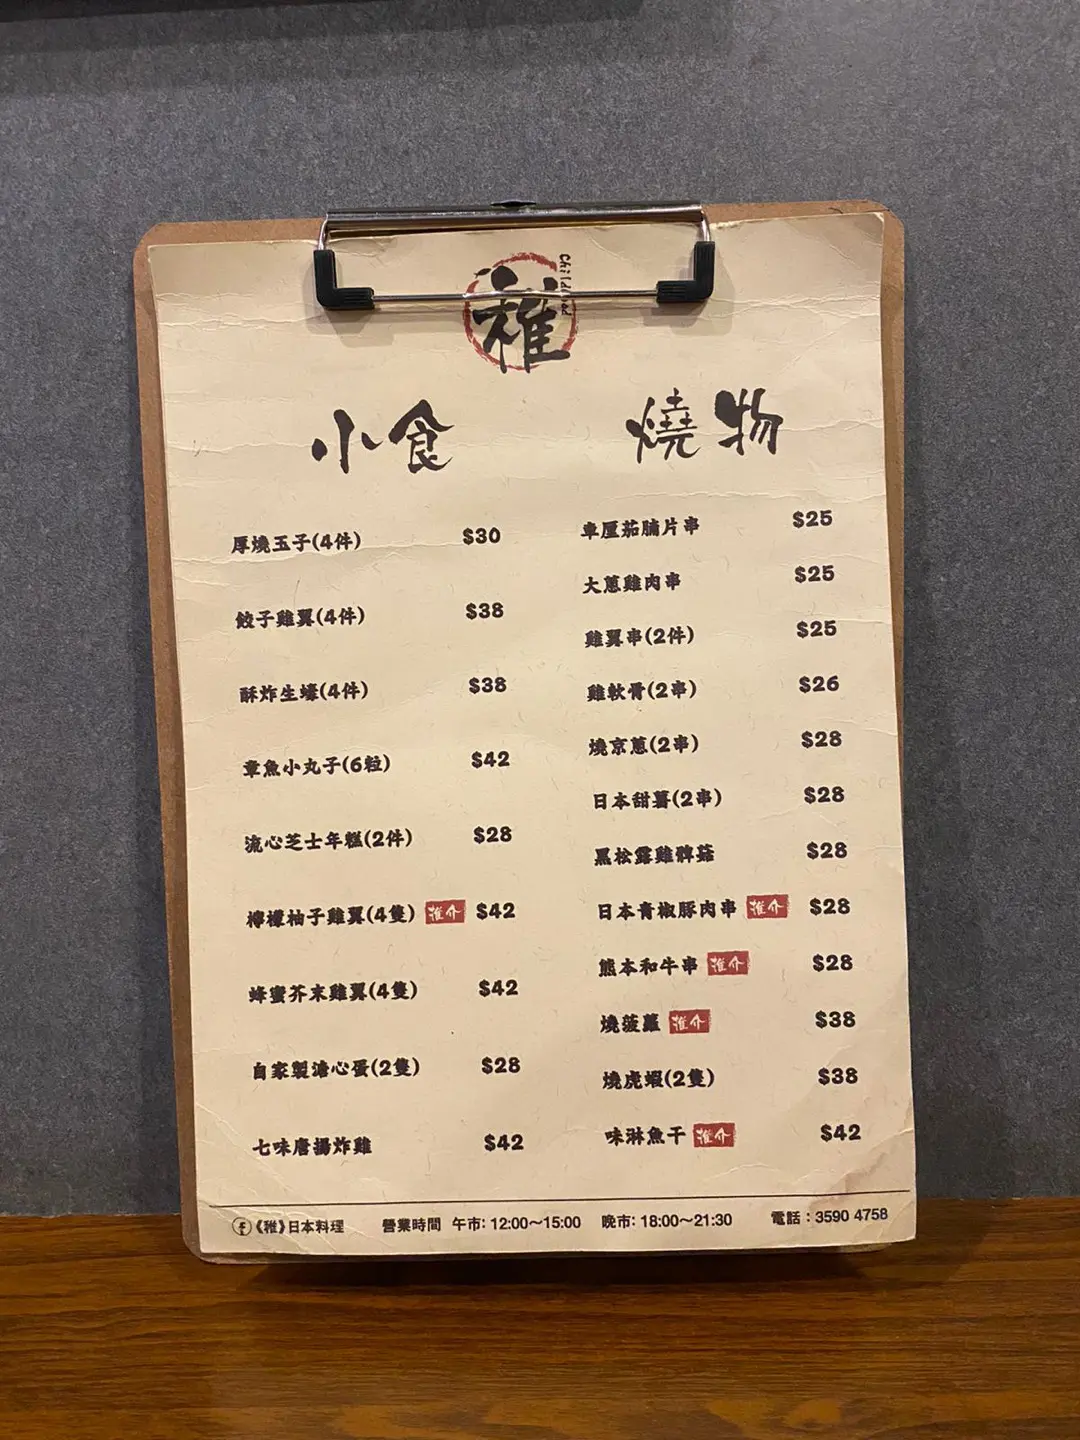 稚
Childhood
小食
厚燒玉子(4件) $30
餃子雞翼(4件) $38
酥炸生蠔(4件) $38
章魚小丸子(6粒) $42
流心芝士年糕(2件) $28
檸檬柚子雞翼(4隻) 推介 $42
蜂蜜芥末雞翼(4隻) $42
自家製溏心蛋(2隻) $28
七味唐揚炸雞 $42
燒物
車厘茄腩片串 $25
大蔥雞肉串 $25
雞翼串(2件) $25
雞軟骨(2串) $26
燒京蔥(2串) $28
日本甜薯(2串) $28
黑松露雞髀菇 $28
日本青椒豚肉串 推介 $28
熊本和牛串 推介 $28
燒菠蘿 推介 $38
燒虎蝦(2隻) $38
味淋魚干 推介 $42
《稚》日本料理 營業時間 午市: 12:00~15:00 晚市: 18:00~21:30 電話：3590 4758